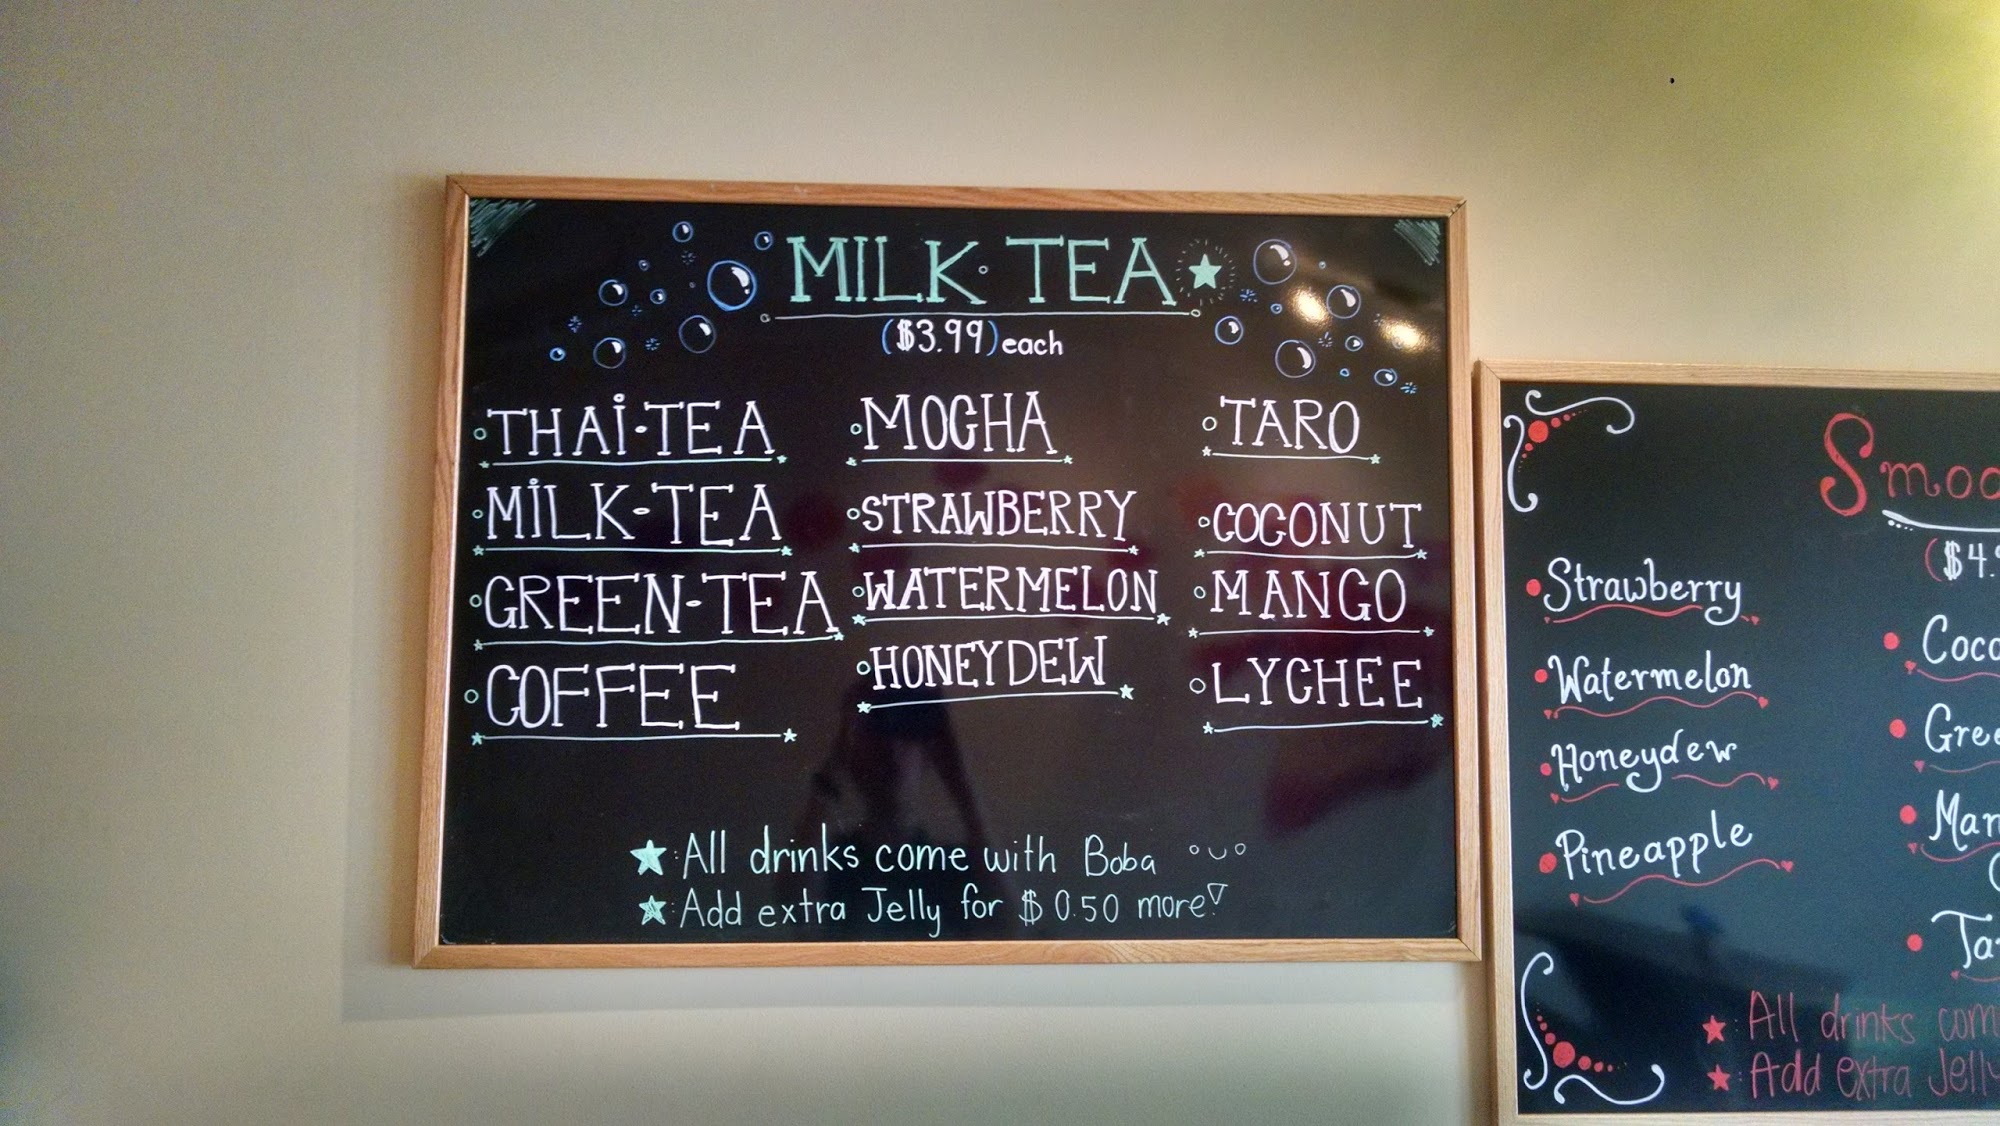 MILK TEA
($3.99) each
THAI-TEA
MILK-TEA
GREEN-TEA
COFFEE
MOCHA
STRAWBERRY
WATERMELON
HONEYDEW
TARO
COCONUT
MANGO
LYCHEE
All drinks come with Boba
Add extra Jelly for $0.50 more!
Strawberry
Watermelon
Honeydew
Pineapple
All drinks
Add extra Jelly